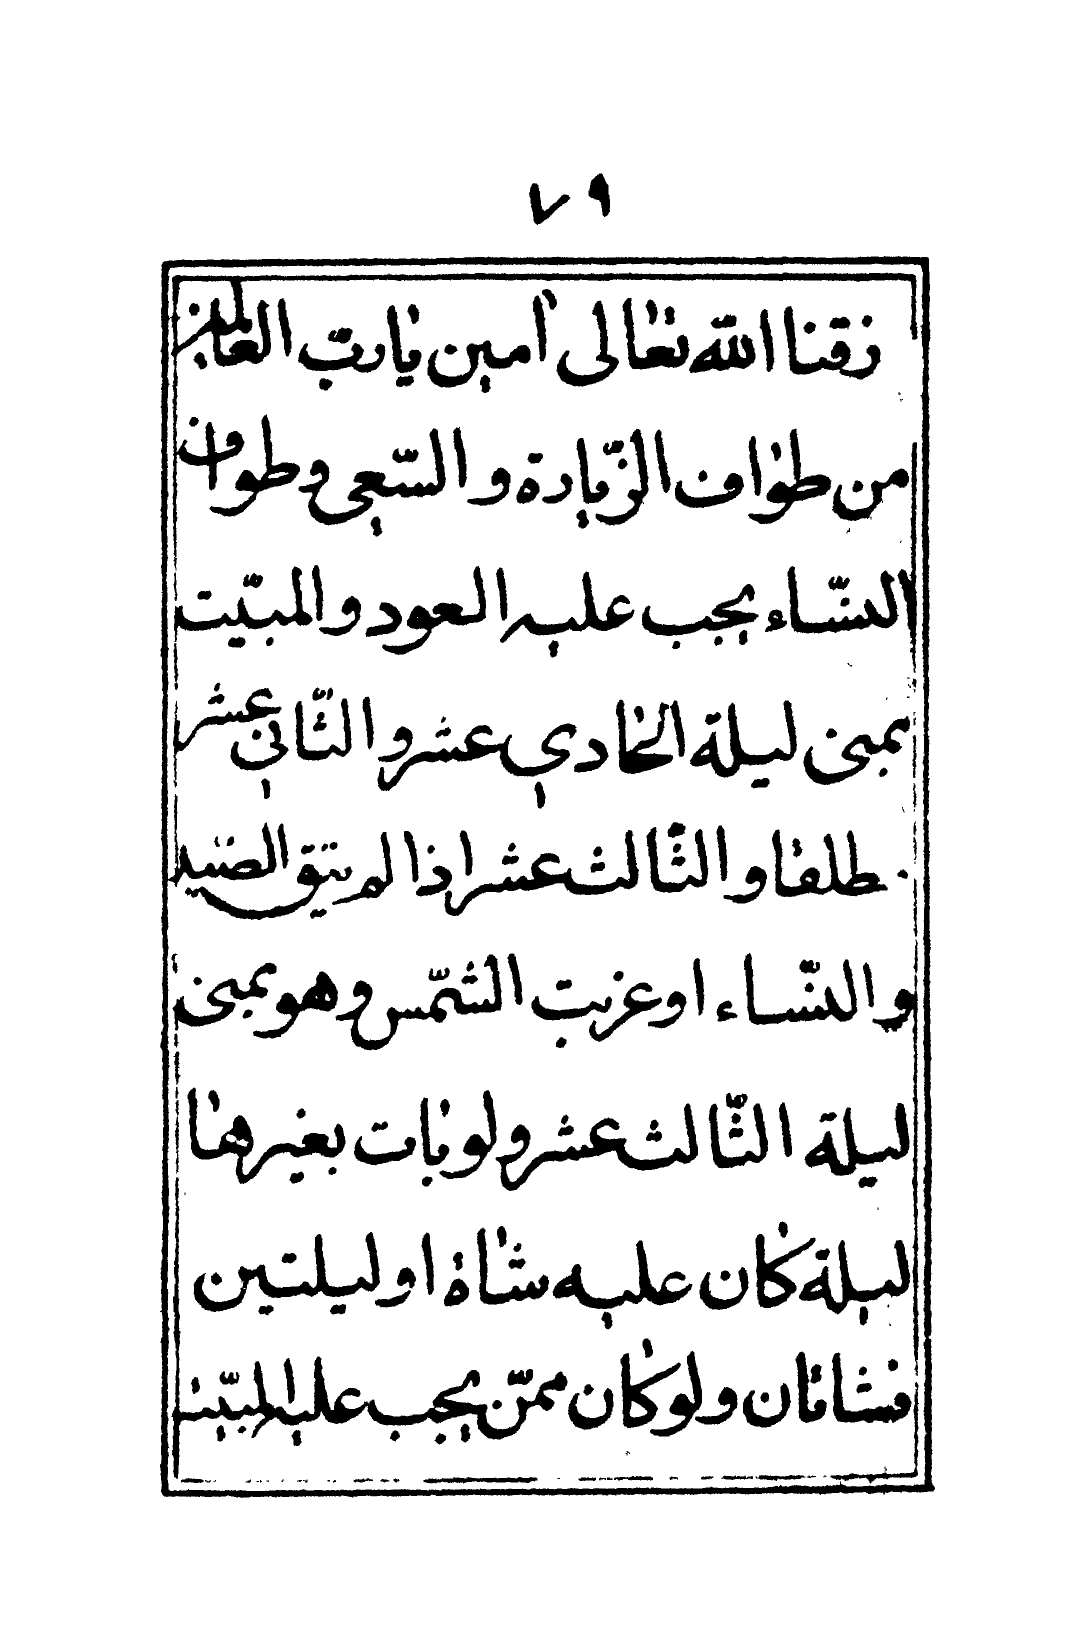 ٧٩
زقنا الله تعالى امين يارب العالمين
من طواف الزّيارة و السّعى و طواف
النسّاء يجب عليه العود و المبيت
بمنى ليلة الحادي عشر و الثّاني عشر
مطلقا و الثّالث عشر اذا لم يتق الصّيد
و النسّاء او غربت الشّمس و هو بمنى
ليلة الثّالث عشر و لو بات بغيرها
ليلة كان عليه شاة او ليلتين
فشاتان و لو كان ممنّ يجب عليه المبيت